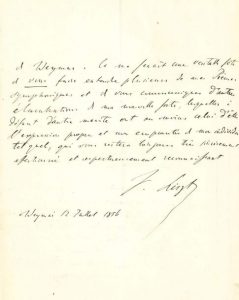 à Weymar. Ce me serait une véritable fête
de vous faire entendre plusieures de mes Poèmes
symphoniques et de vous communiquer d'autres
élucubrations de ma façon, lesquelles à
défaut d'autre mérite ont au moins celui d'être
l'expression propre et non empruntée de mon individu
tel quel, qui vous restera toujours très sincèrement
affectionné et respectueusement reconnaissant
F. Liszt
Weymar 12 Juillet 1856